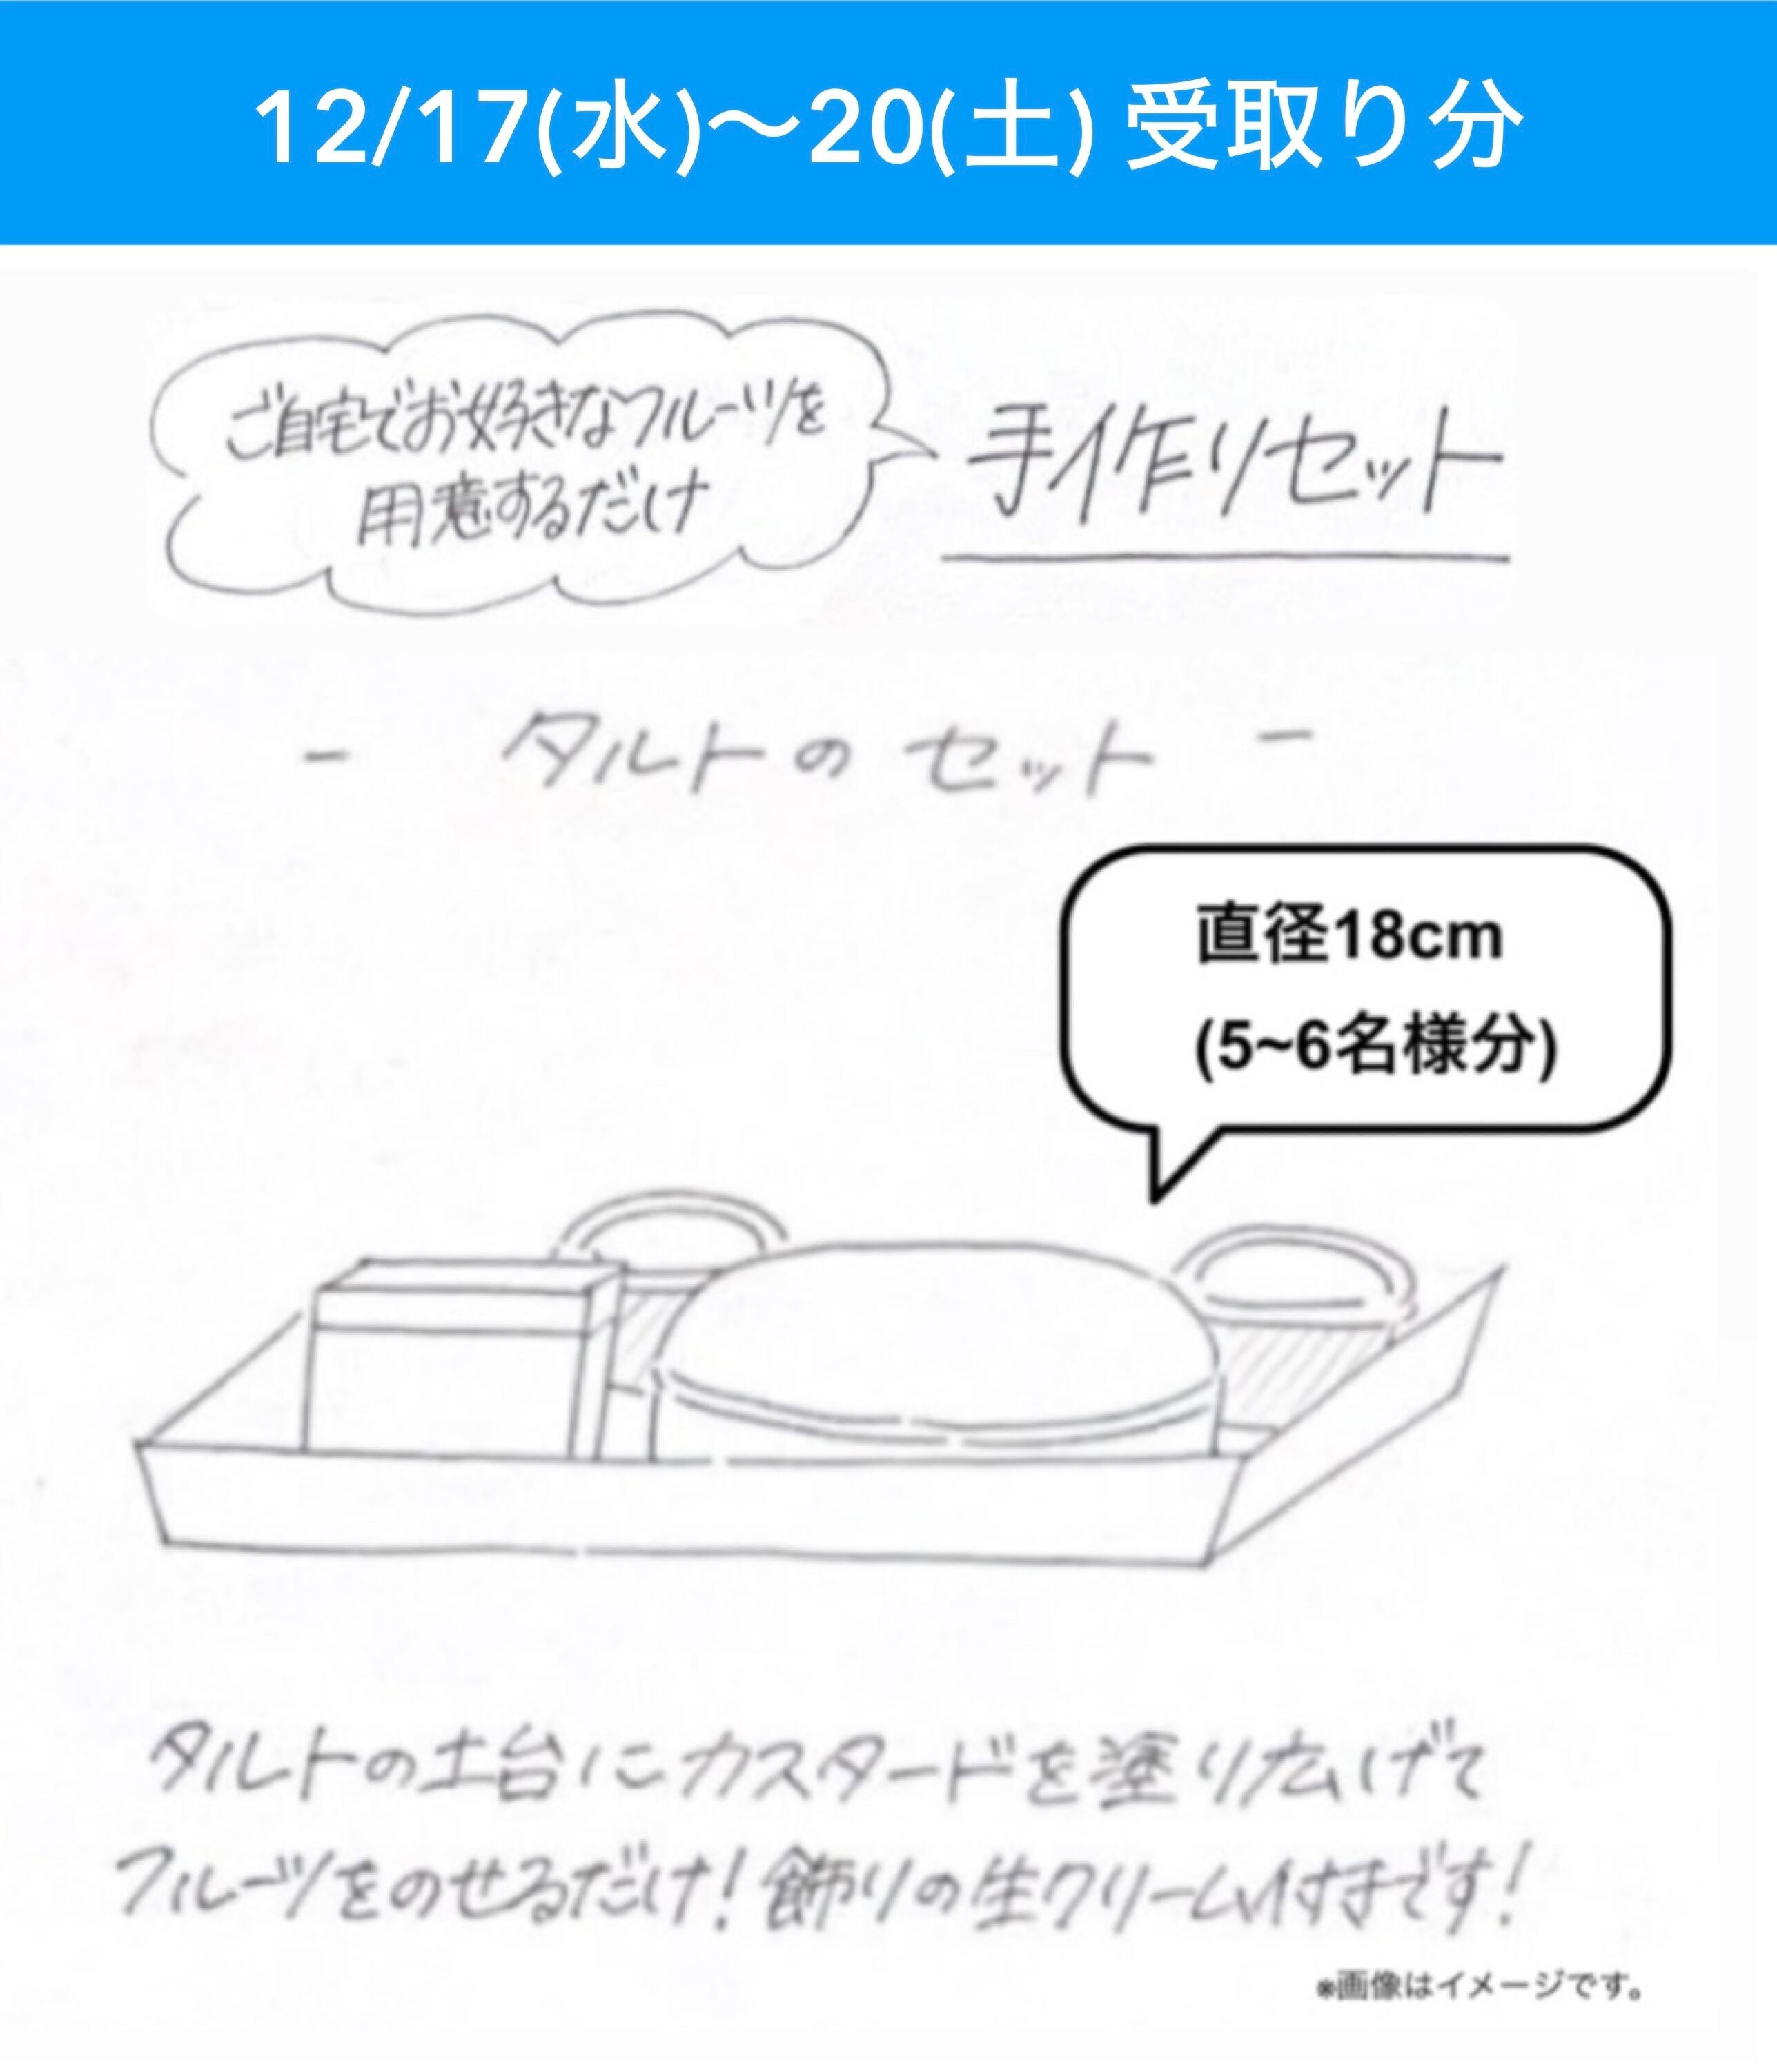 12/17(水)〜20(土) 受取り分
ご自宅でお好きなフルーツを
用意するだけ
手作りセット
- タルトのセット -
直径18cm
(5~6名様分)
タルトの土台にカスタードを塗り広げて
フルーツをのせるだけ!飾りの生クリーム付きです!
※画像はイメージです。